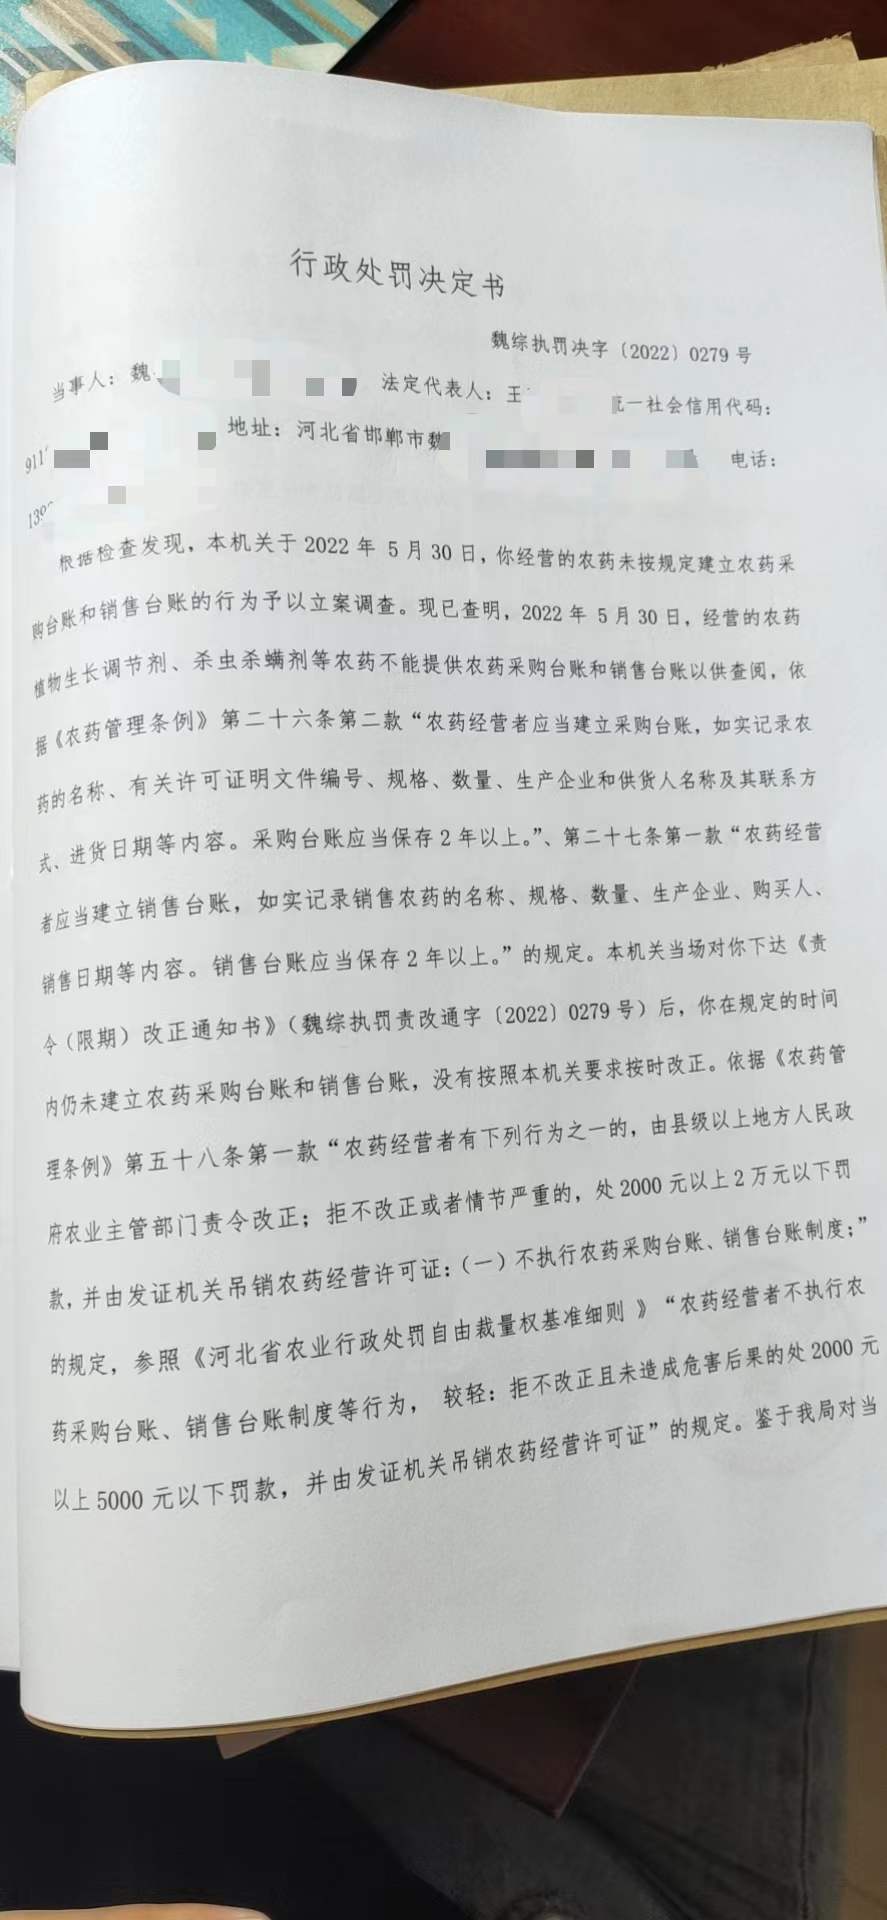 行政处罚决定书
魏综执罚决字〔2022〕0279号
当事人：魏 法定代表人：王 统一社会信用代码：
911 地址：河北省邯郸市魏 电话：
139
根据检查发现，本机关于2022年5月30日，你经营的农药未按规定建立农药采
购台账和销售台账的行为予以立案调查。现已查明，2022年5月30日，经营的农药
植物生长调节剂、杀虫杀螨剂等农药不能提供农药采购台账和销售台账以供查阅，依
据《农药管理条例》第二十六条第二款“农药经营者应当建立采购台账，如实记录农
药的名称、有关许可证明文件编号、规格、数量、生产企业和供货人名称及其联系方
式、进货日期等内容。采购台账应当保存2年以上。”、第二十七条第一款“农药经营
者应当建立销售台账，如实记录销售农药的名称、规格、数量、生产企业、购买人、
销售日期等内容。销售台账应当保存2年以上。”的规定。本机关当场对你下达《责
令（限期）改正通知书》（魏综执罚责改通字〔2022〕0279号）后，你在规定的时间
内仍未建立农药采购台账和销售台账，没有按照本机关要求按时改正。依据《农药管
理条例》第五十八条第一款“农药经营者有下列行为之一的，由县级以上地方人民政
府农业主管部门责令改正；拒不改正或者情节严重的，处2000元以上2万元以下罚
款，并由发证机关吊销农药经营许可证：（一）不执行农药采购台账、销售台账制度；”
的规定，参照《河北省农业行政处罚自由裁量权基准细则》“农药经营者不执行农
药采购台账、销售台账制度等行为，较轻：拒不改正且未造成危害后果的处2000元
以上5000元以下罚款，并由发证机关吊销农药经营许可证”的规定。鉴于我局对当